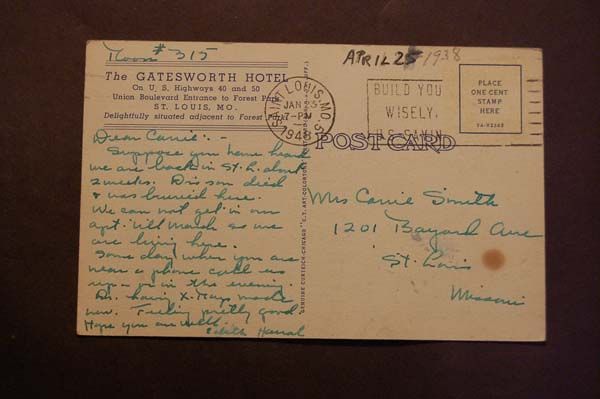 Room #315
The GATESWORTH HOTEL
On U. S. Highways 40 and 50
Union Boulevard Entrance to Forest Park
ST. LOUIS, MO.
Delightfully situated adjacent to Forest Park
APRIL 25 1938
SAINT LOUIS, MO. 5
JAN 23
7-PM
1948
BUILD YOU
WISELY,
PLACE
ONE CENT
STAMP
HERE
POST CARD
Dear Carrie: -
Suppose you have heard
we are back in St. L. about
2 weeks. Drs son died
& was buried here.
We can not get in our
apt. till March so we
are living here.
Some day when you are
near a phone call us
up - or in the evening
Dr. having X-Rays made
now. Feeling pretty good
Hope you are well.
Edith
GENUINE CURTEICH-CHICAGO "C.T. ART-COLORTONE"
Mrs Carrie Smith
1201 Bayard Ave
St. Louis
Missouri